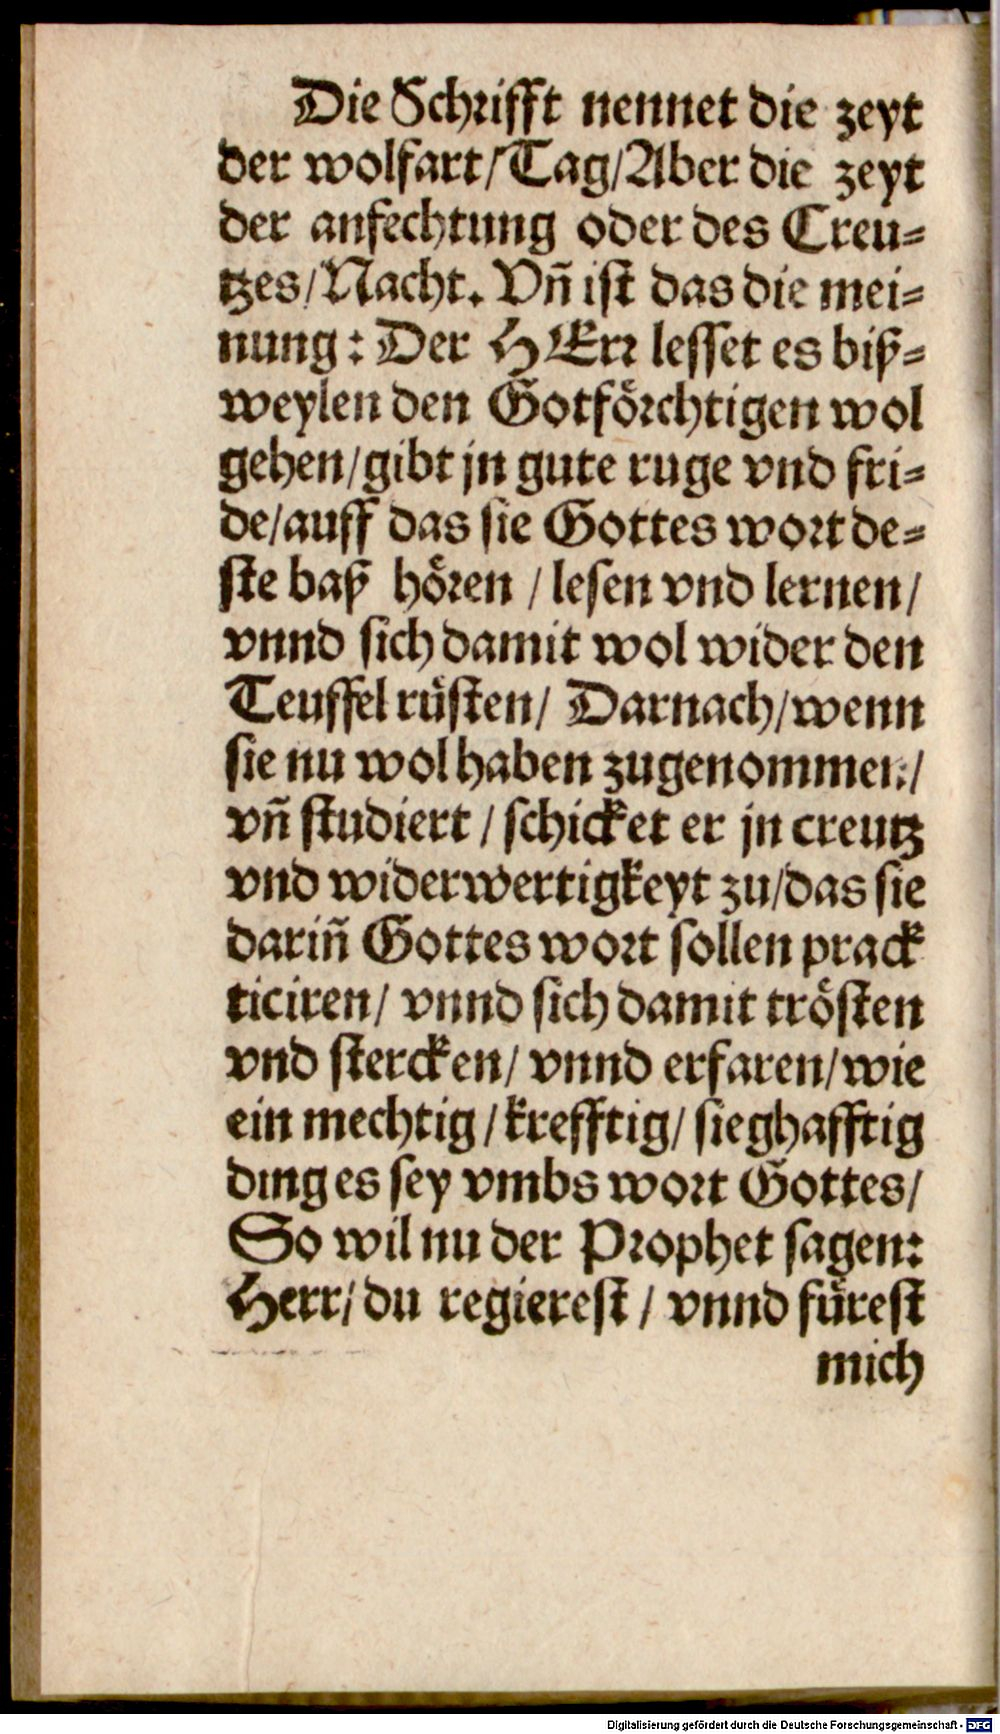 Die Schrifft nennet die zeyt
der wolfart/Tag/Aber die zeyt
der anfechtung oder des Creu-
tzes/Nacht. Vn̄ ist das die mei-
nung: Der HErr lesset es biß-
weylen den Gotförchtigen wol
gehen/gibt jn gute ruge vnd fri-
de/auff das sie Gottes wort de-
ste baß hören / lesen vnd lernen/
vnnd sich damit wol wider den
Teuffel rüsten/ Darnach/wenn
sie nu wol haben zugenommen/
vn̄ studiert / schicket er jn creutz
vnd widerwertigkeyt zu/das sie
darin̄ Gottes wort sollen prack
ticiren/ vnnd sich damit trösten
vnd stercken/ vnnd erfaren/wie
ein mechtig/krefftig/sieghafftig
ding es sey vmbs wort Gottes/
So wil nu der Prophet sagen:
Herr/du regierest / vnnd fürest
mich
Digitalisierung gefördert durch die Deutsche Forschungsgemeinschaft - DFG